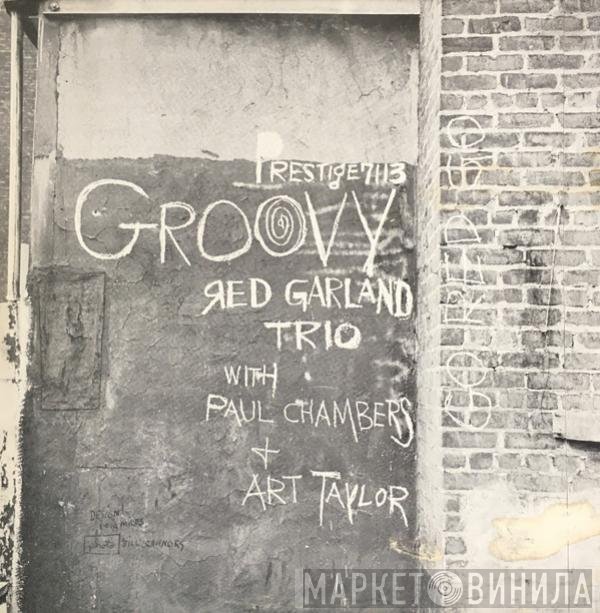 PRESTIGE 7113
GROOVY
RED GARLAND
TRIO
WITH
PAUL CHAMBERS
+
ART TAYLOR
GO RED GO
DESIGN
МАРКЕТ ВИНИЛА